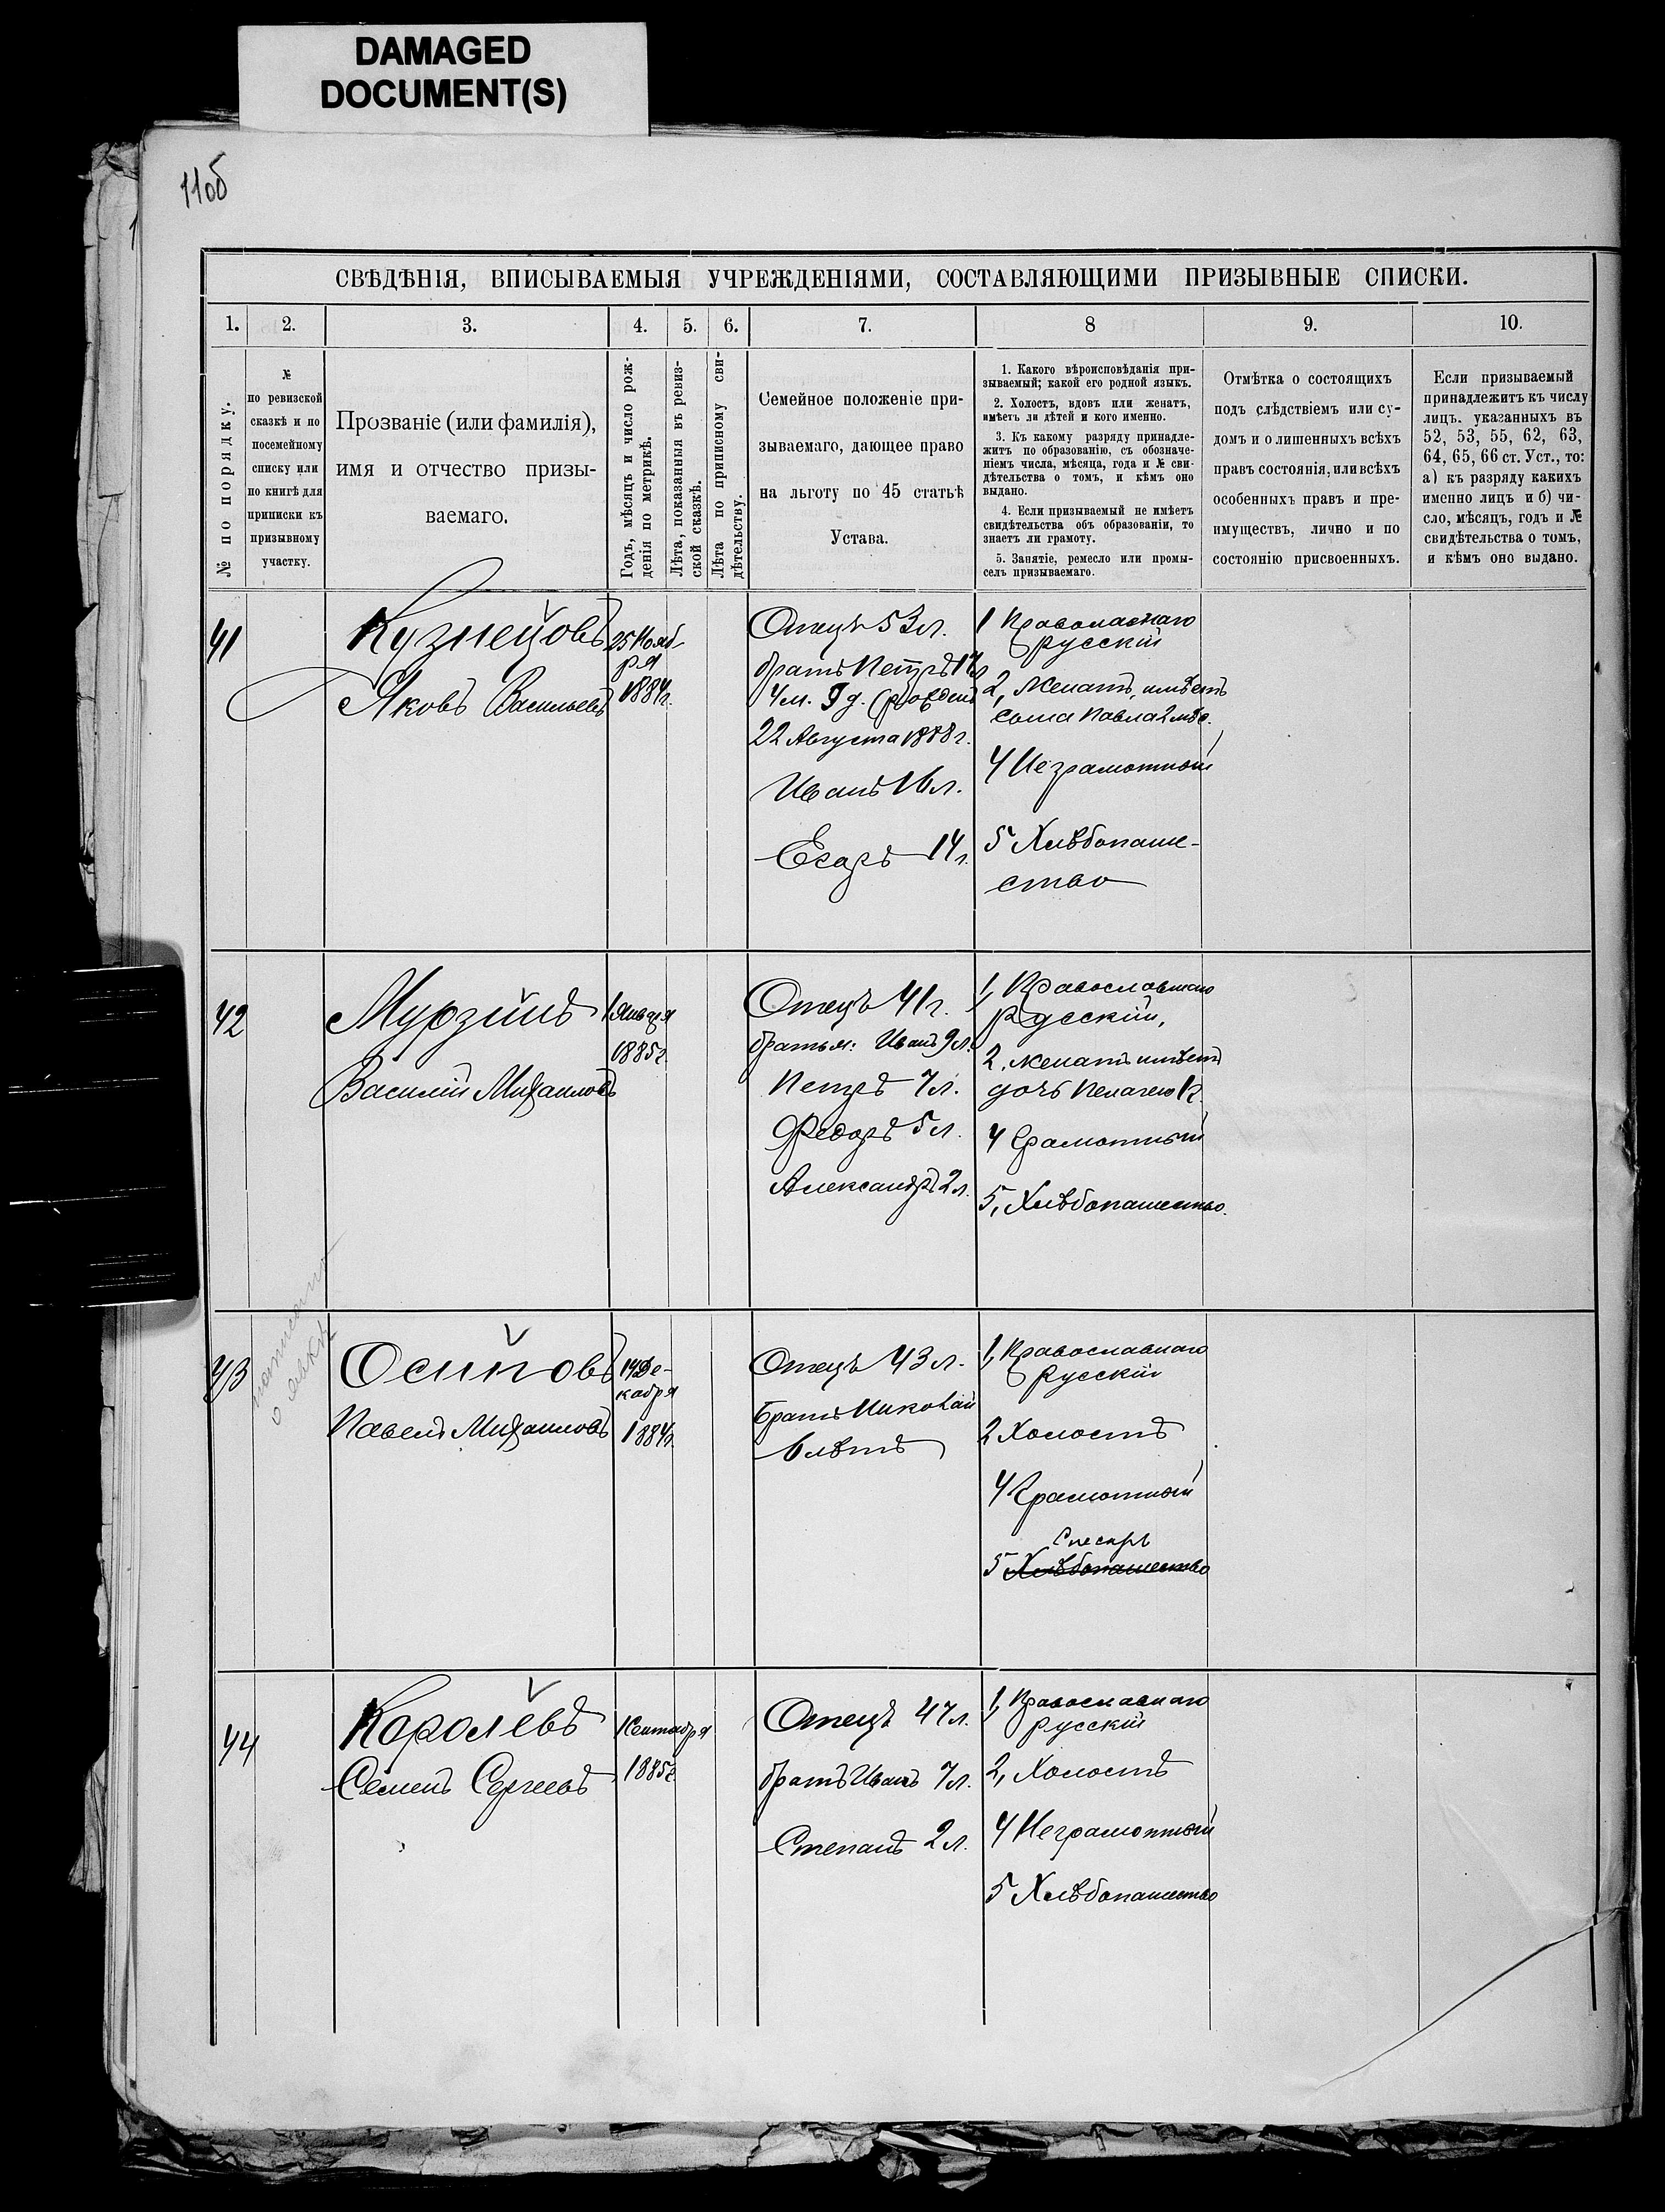 DAMAGED
DOCUMENT(S)
110б
СВѢДѢНІЯ, ВПИСЫВАЕМЫЯ УЧРЕЖДЕНІЯМИ, СОСТАВЛЯЮЩИМИ ПРИЗЫВНЫЕ СПИСКИ.
1. 2. 3. 4. 5. 6. 7. 8 9. 10.
№ по порядку.
№
по ревизской
сказкѣ и по
посемейному
списку или
по книгѣ для
приписки къ
призывному
участку.
Прозваніе (или фамилія),
имя и отчество призы-
ваемаго.
Годъ, мѣсяцъ и число рож-
денія по метрикѣ.
Лѣта, показанныя въ ревиз-
ской сказкѣ.
Лѣта по приписному сви-
дѣтельству.
Семейное положеніе при-
зываемаго, дающее право
на льготу по 45 статьѣ
Устава.
1. Какого вѣроисповѣданія при-
зываемый; какой его родной языкъ.
2. Холостъ, вдовъ или женатъ,
имѣетъ ли дѣтей и кого именно.
3. Къ какому разряду принадле-
житъ по образованію, съ обозначе-
ніемъ числа, мѣсяца, года и № сви-
дѣтельства о томъ, и кѣмъ оно
выдано.
4. Если призываемый не имѣетъ
свидѣтельства объ образованіи, то
знаетъ ли грамоту.
5. Занятіе, ремесло или промы-
селъ призываемаго.
Отмѣтка о состоящихъ
подъ слѣдствіемъ или су-
домъ и о лишенныхъ всѣхъ
правъ состоянія, или всѣхъ
особенныхъ правъ и пре-
имуществъ, лично и по
состоянію присвоенныхъ.
Если призываемый
принадлежитъ къ числу
лицъ, указанныхъ въ
52, 53, 55, 62, 63,
64, 65, 66 ст. Уст., то:
а) къ разряду какихъ
именно лицъ и б) чи-
сло, мѣсяцъ, годъ и №
свидѣтельства о томъ,
и кѣмъ оно выдано.
41
Кузнецовъ
Яковъ Васильевъ
25 Нояб-
ря
1884г.
Отецъ 53 л.
братъ Петръ 17 л
4 м. 9 д. (рожден
22 Августа 1888 г.
Иванъ 16 л.
Егоръ 14 г.
1 Православнаго
русскій
2, Женатъ, имѣетъ
сына Павла 2 мѣс.
4 Неграмотный
5 Хлѣбопаше-
ство
42
Мурзинъ
Василій Михаиловъ
1 Января
1885г.
Отецъ 41 г.
братья: Иванъ 9 л.
Петръ 7 л.
Федоръ 5 л.
Александръ 2 л.
1, Православнаго
русскій,
2, женатъ имѣетъ
дочь Пелагею 1 г.
4 Грамотный
5, Хлѣбопашество.
43
Осиповъ
Павелъ Михаиловъ
14 Де-
кабря
1884г.
Отецъ 43 л.
Братъ Николай
6 лѣтъ
1, Православнаго
русскій
2 Холостъ
4 Грамотный
Слесарь
5 Хлѣбопашество
44
Королевъ
Семенъ Сергеевъ
1 Сентября
1885г.
Отецъ 47 л.
братъ Иванъ 7 л.
Степанъ 2 л.
1, Православнаго
русскій
2, Холостъ
4 Неграмотный
5 Хлѣбопашество